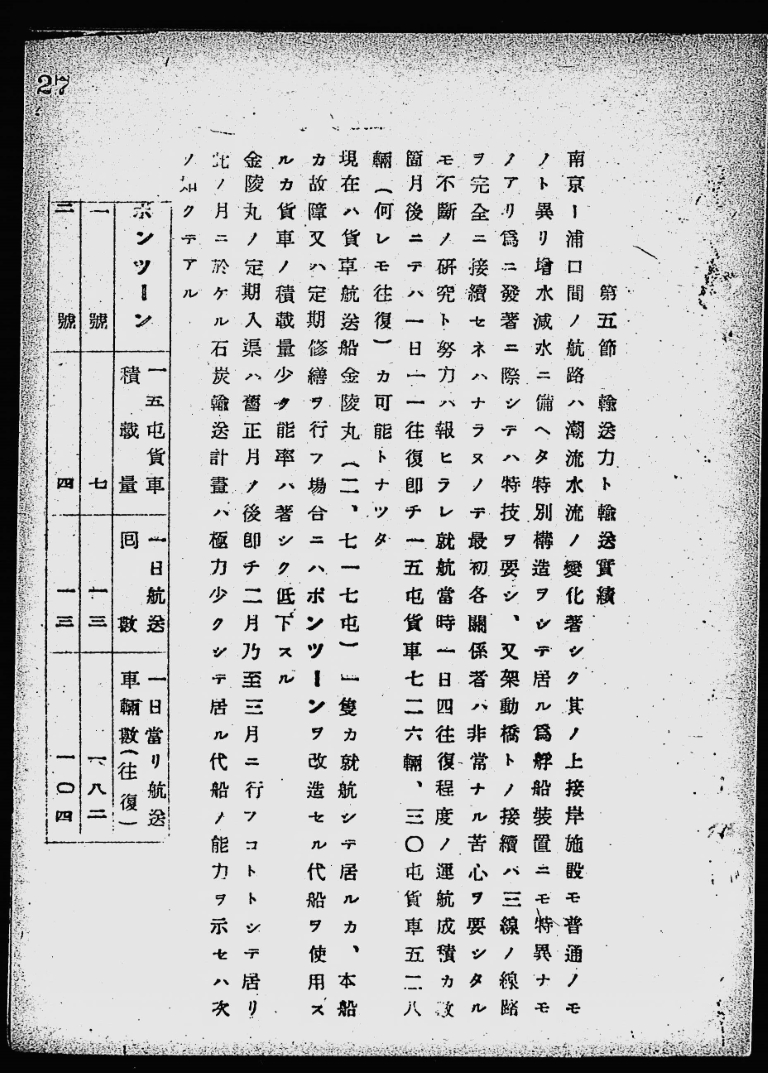 27
第五節 輸送力ト輸送實績
南京ー浦口間ノ航路ハ潮流水流ノ變化著シク其ノ上接岸施設モ普通ノモ
ノト異リ增水減水ニ備ヘタ特別構造ヲシテ居ル爲艀船裝置ニモ特異ナモ
ノアリ爲ニ發著ニ際シテハ特技ヲ要シ、又架動橋トノ接續ハ三線ノ線路
ヲ完全ニ接續セネハナラヌノテ最初各關係者ハ非常ナル苦心ヲ要シタル
モ不斷ノ研究ト努力ハ報ヒラレ就航當時一日四往復程度ノ運航成積カ數
箇月後ニテハ一日一一往復卽チ一五屯貨車七二六輛、三〇屯貨車五二八
輛(何レモ往復)カ可能トナツタ
現在ハ貨車航送船金陵丸(二、七一七屯)一隻カ就航シテ居ルカ、本船
カ故障又ハ定期修繕ヲ行フ場合ニハポンツーンヲ改造セル代船ヲ使用ス
ルカ貨車ノ積載量少ク能率ハ著シク低下スル
金陵丸ノ定期入渠ハ舊正月ノ後卽チ二月乃至三月ニ行フコトトシテ居リ
此ノ月ニ於ケル石炭輸送計畫ハ極力少クシテ居ル代船ノ能力ヲ示セハ次
ノ如クテアル
ポンツーン 一五屯貨車積載量 一日航送回數 一日當リ航送車輛數(往復)
一號 七 一三 一八二
二號 四 一三 一〇四